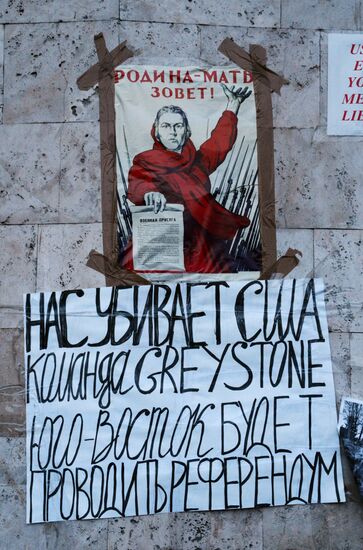 РОДИНА-МАТЬ
ЗОВЕТ!
ВОЕННАЯ ПРИСЯГА
US
E
YO
ME
LIB
НАС УБИВАЕТ США
КОМАНДА GREYSTONE
ЮГО-ВОСТОК БУДЕТ
ПРОВОДИТЬ РЕФЕРЕНДУМ